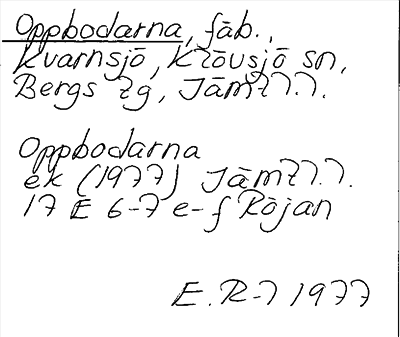 Oppbodarna, fäb.,
Kvarnsjö, Klövsjö sn,
Bergs tg, Jämtl.l.
Oppbodarna
ek (1977) Jämtl.l.
17 E 6-7 e-f Röjan
E.R-7 1977